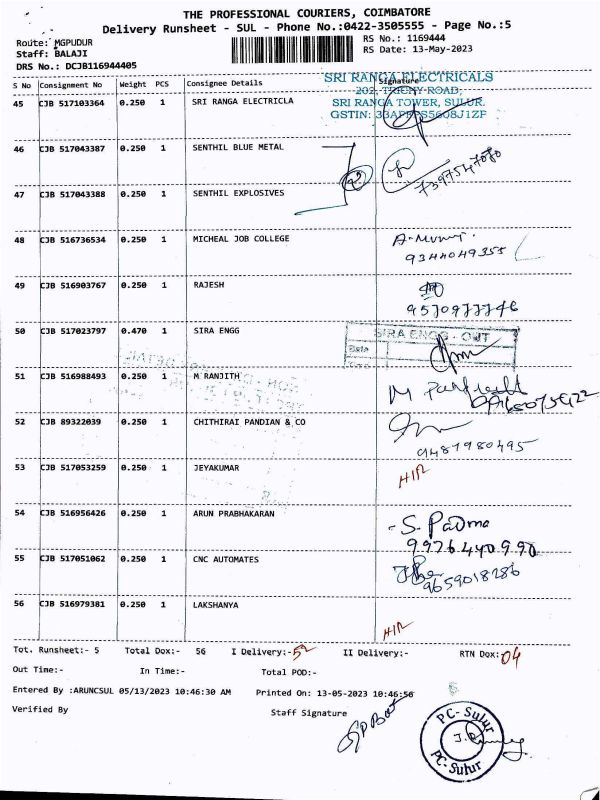 THE PROFESSIONAL COURIERS, COIMBATORE
Delivery Runsheet - SUL - Phone No.:0422-3505555 - Page No.:5
Route: MGPUDUR RS No.: 1169444
Staff: BALAJI RS Date: 13-May-2023
DRS No.: DCJB116944405
S No Consignment No Weight PCS Consignee Details Signature
SRI RANGA ELECTRICALS
202, TRICHY ROAD,
SRI RANGA TOWER, SULUR.
45 CJB 517103364 0.250 1 SRI RANGA ELECTRICLA
46 CJB 517043387 0.250 1 SENTHIL BLUE METAL
7397547080
47 CJB 517043388 0.250 1 SENTHIL EXPLOSIVES
48 CJB 516736534 0.250 1 MICHEAL JOB COLLEGE
9344049355
49 CJB 516903767 0.250 1 RAJESH
9570977746
50 CJB 517023797 0.470 1 SIRA ENGG
SIRA ENGG - OUT
Date
51 CJB 516988493 0.250 1 M RANJITH
52 CJB 89322039 0.250 1 CHITHIRAI PANDIAN & CO
9487980495
53 CJB 517053259 0.250 1 JEYAKUMAR
54 CJB 516956426 0.250 1 ARUN PRABHAKARAN
- S. Padma
9976440990
55 CJB 517051062 0.250 1 CNC AUTOMATES
9659018286
56 CJB 516979381 0.250 1 LAKSHANYA
Tot. Runsheet:- 5 Total Dox:- 56 I Delivery:- 52 II Delivery:- RTN Dox: 04
Out Time:- In Time:- Total POD:-
Entered By :ARUNCSUL 05/13/2023 10:46:30 AM Printed On: 13-05-2023 10:46:56
Verified By Staff Signature
PC- Sulur
PC- Sulur